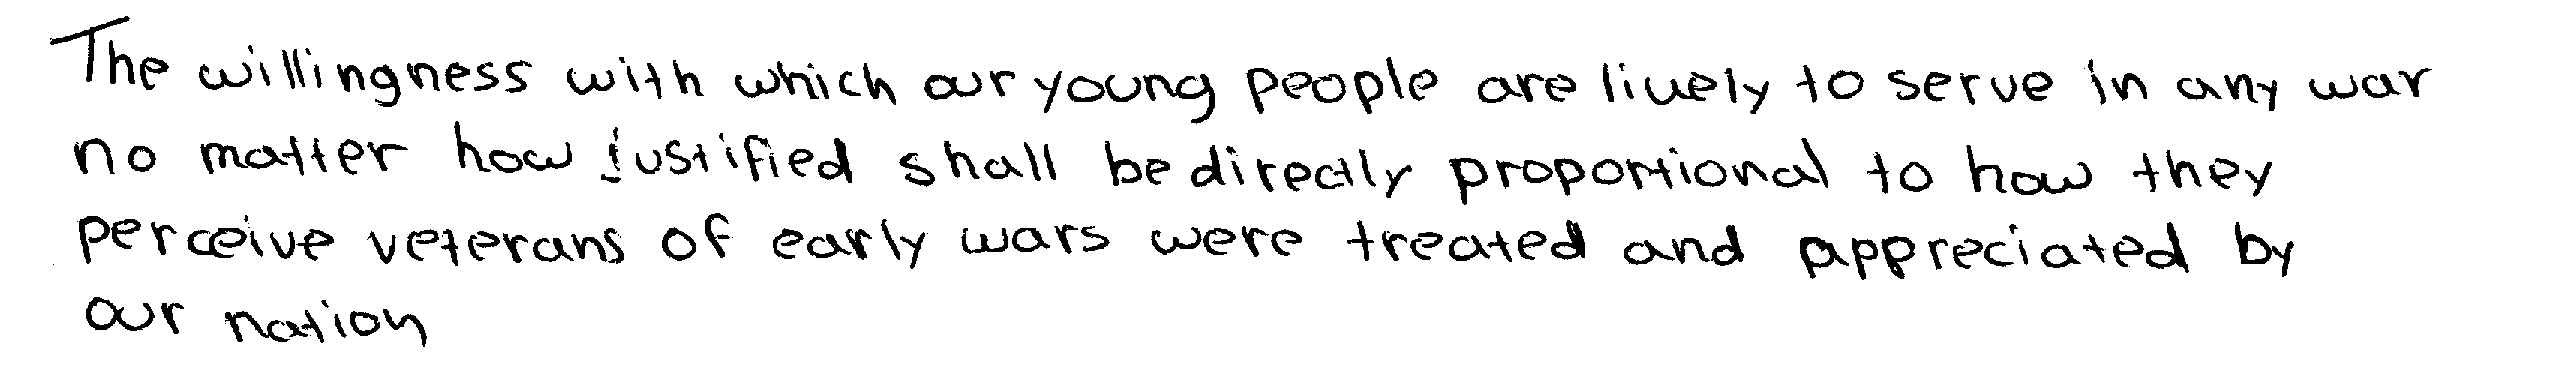 The willingness with which our young people are lively to serve in any war
no matter how justified shall be directly proportional to how they
perceive veterans of early wars were treated and appreciated by
our nation